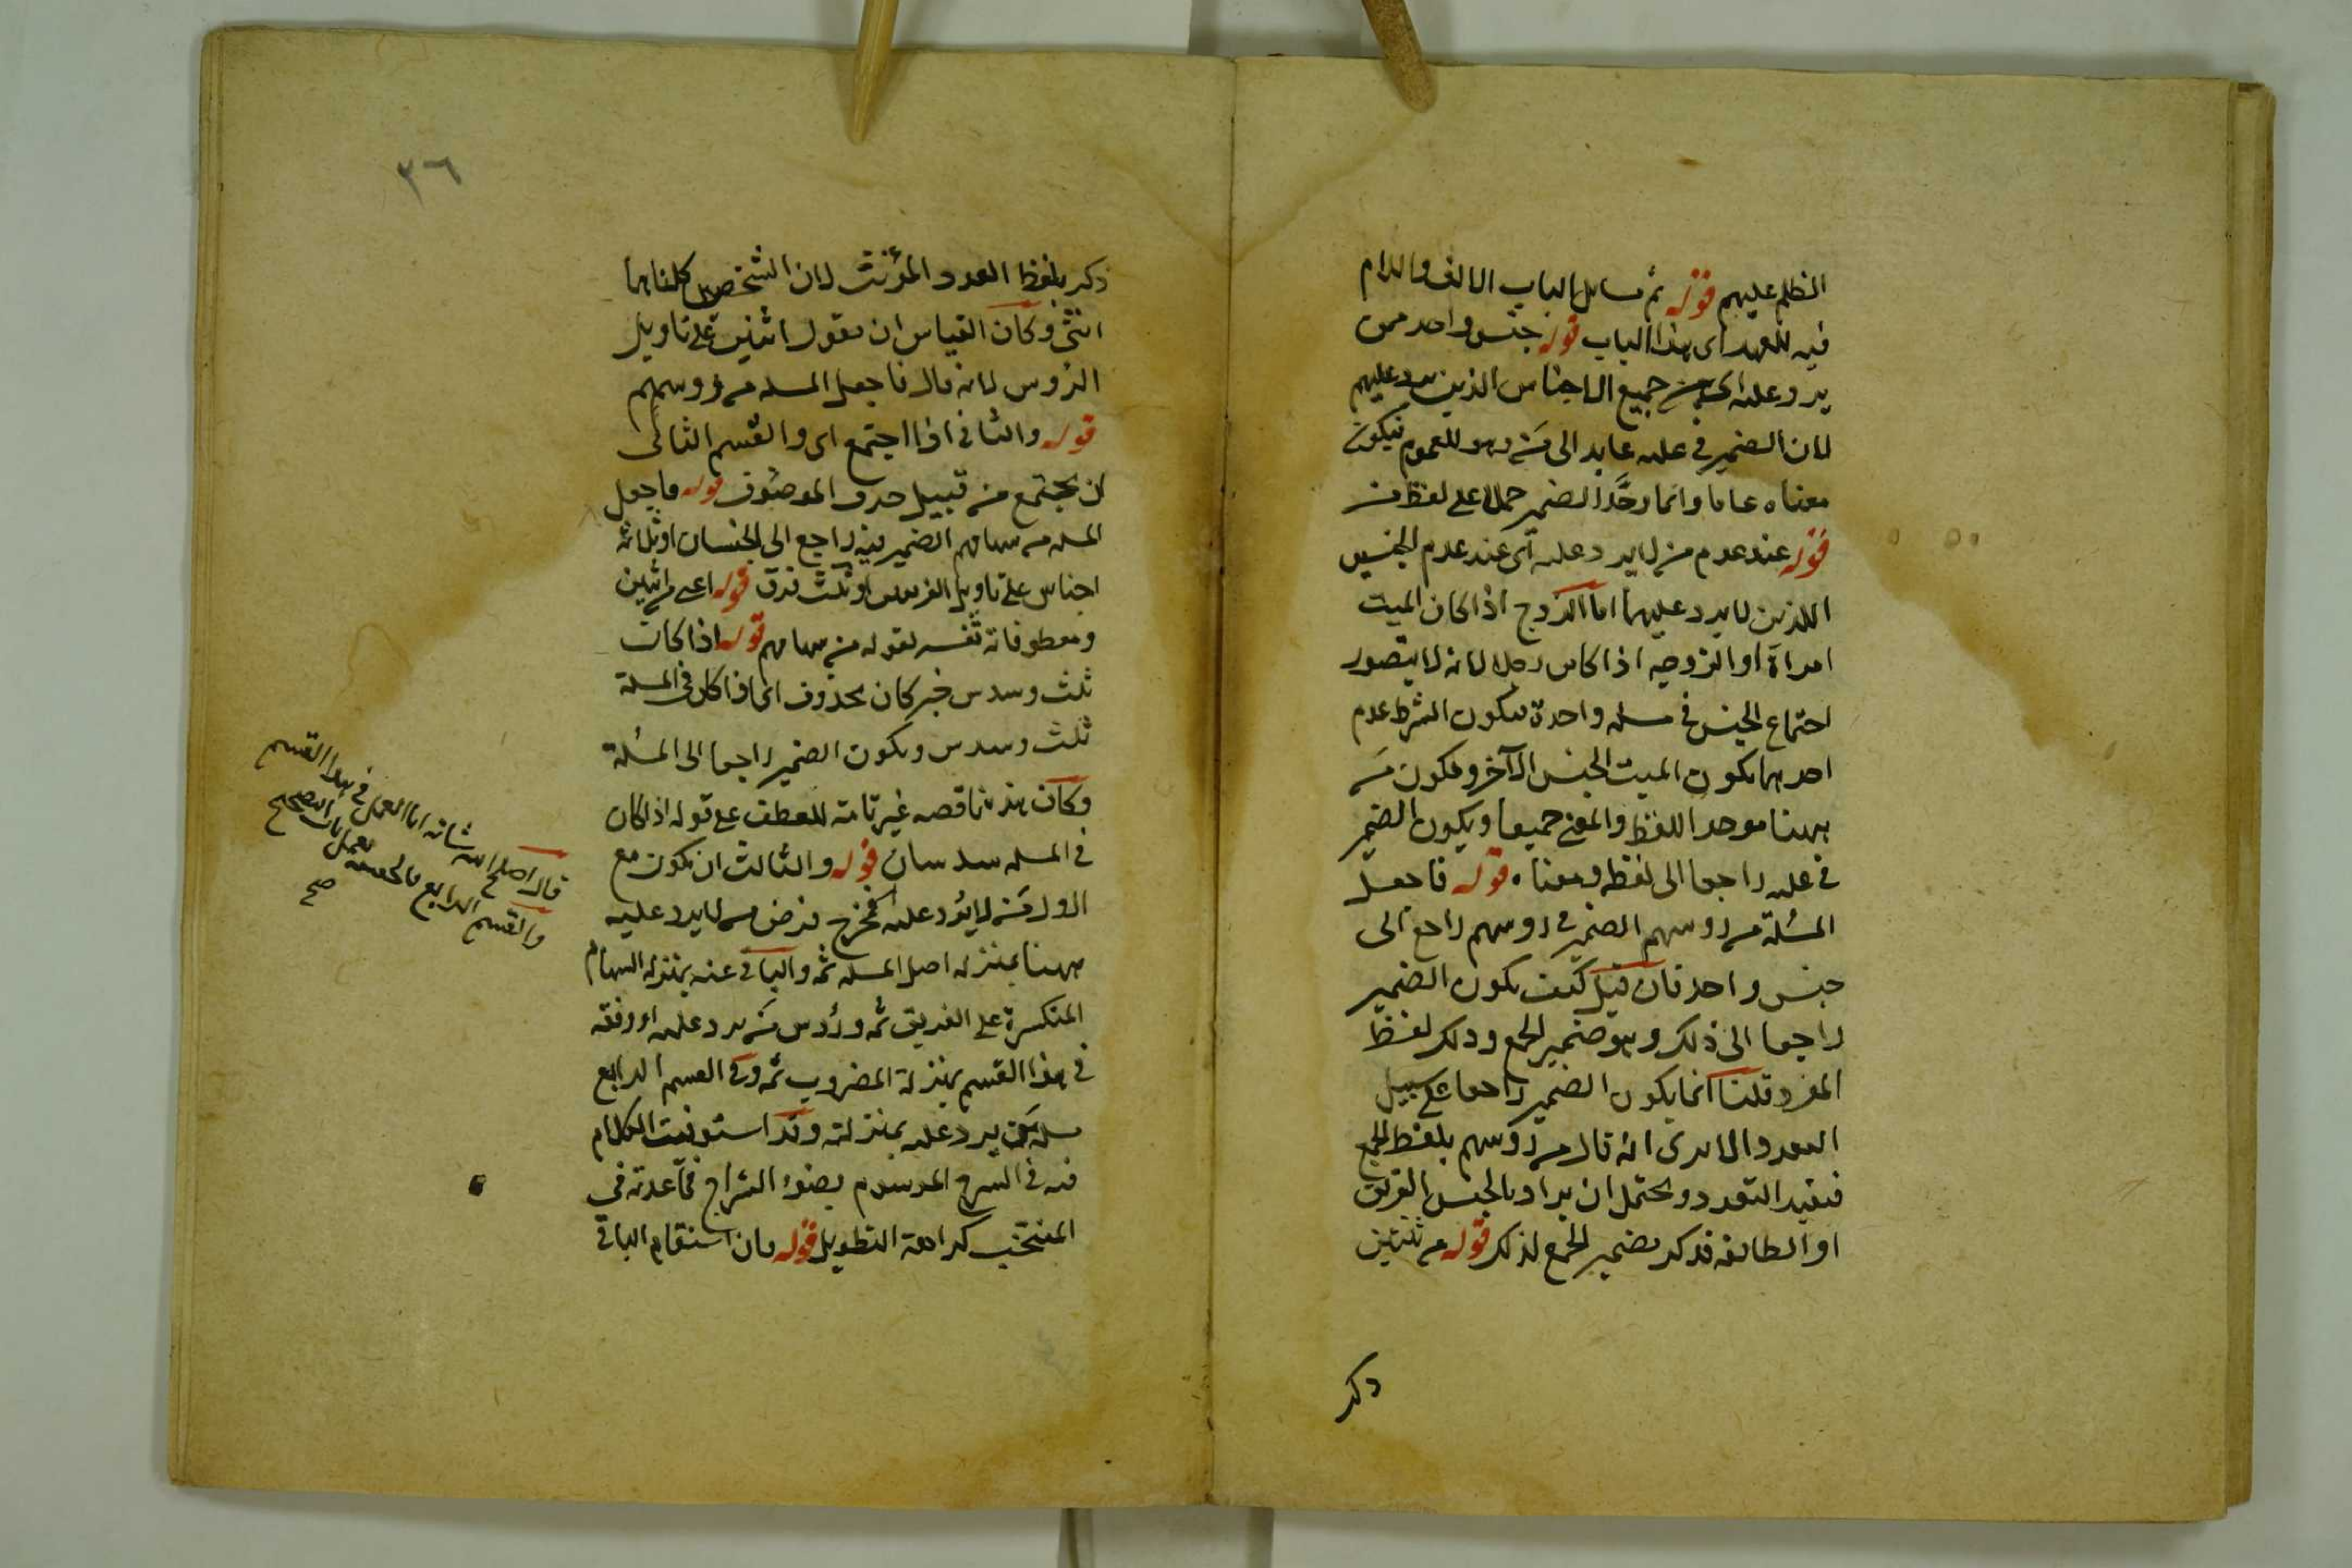 الظلم عليهم قوله ثم مسايل الباب الالف واللام
فيه للعهد اى هذا الباب قوله جنس واحد ممن
يرد عليه اى من جميع الاجناس الذين يرد عليهم
لان الضمير فى عليه عايد الى من وهو للعموم فيكون
معناه عاما وانما وحد الضمير حملا على لفظ من
قوله عند عدم من لا يرد عليه اى عند عدم الجنسين
اللذين لا يرد عليهما اما الزوج اذا كان الميت
امراة او الزوجه اذا كان رجلا لانه لا يتصور
اجتماع الجنس فى مسله واحدة فيكون الشرط عدم
احدهما بكون الميت الجنس الآخر ويكون من
ههنا موحد اللفظ والمعنى جميعا ويكون الضمير
فى عليه راجعا الى لفظه ومعناه قوله فاجعل
المسئلة من روسهم الضمير فى روسهم راجع الى
جنس واحد فان قيل كيف يكون الضمير
راجعا الى ذلك وهو ضمير الجمع وذلك لفظ
المفرد قلنا انما يكون الضمير راجعا على سبيل
التعدد الا يرى انه قال من روسهم بلفظ الجمع
فيفيد التعدد ويحتمل ان يراد بالجنس الفريق
او الطائفه فذكر بضمير الجمع لذلك قوله من ثنتين
ذكر
٣٦
ذكر بلفظ العدد المؤنث لان الشخصين كلتاهما
انثى وكان القياس ان يقول اثنين على تاويل
الرؤس لانه قال فاجعل المسله من رؤوسهم
قوله والثانى اذا اجتمع اى والقسم الثانى
ان يجتمع من قبيل حذف الموصوف قوله فاجعل
المسله من سهامهم الضمير فيه راجع الى الجنسان او ثلاثة
اجناس على تاويل الفريقين او ثلث فرق قوله اعنى من اثنين
ومعطوفاته تفسير لقوله من سهامهم قوله اذا كان
ثلث وسدس خبر كان محذوف اى اذا كان فى المسلة
ثلث وسدس ويكون الضمير راجعا الى المسئلة
وكان هذه ناقصه غير تامة للعطف على قوله اذا كان
فى المسله سدسان قوله والثالث ان يكون مع
الاول من لا يرد عليه مخرج فرض من لا يرد عليه
ههنا بمنزله اصل المسله ثمه والباقى عنه بمنزله السهام
المنكسرة على الفريق ثمه ورؤس من يرد عليه او وفقه
فى هذا القسم بمنزلة المضروب ثمه وفى القسم الرابع
مسله من يرد عليه بمنزلته وقد استوفيت الكلام
فيه فى الشرح الموسوم بضوء السراج فما اعدته فى
المنتخب كراهة التطويل قوله فان استقام الباقى
قال اصلح الله شانه اما العمل فى هذا القسم
والقسم الرابع فالحقيقه بعمل باب التصحيح
صح